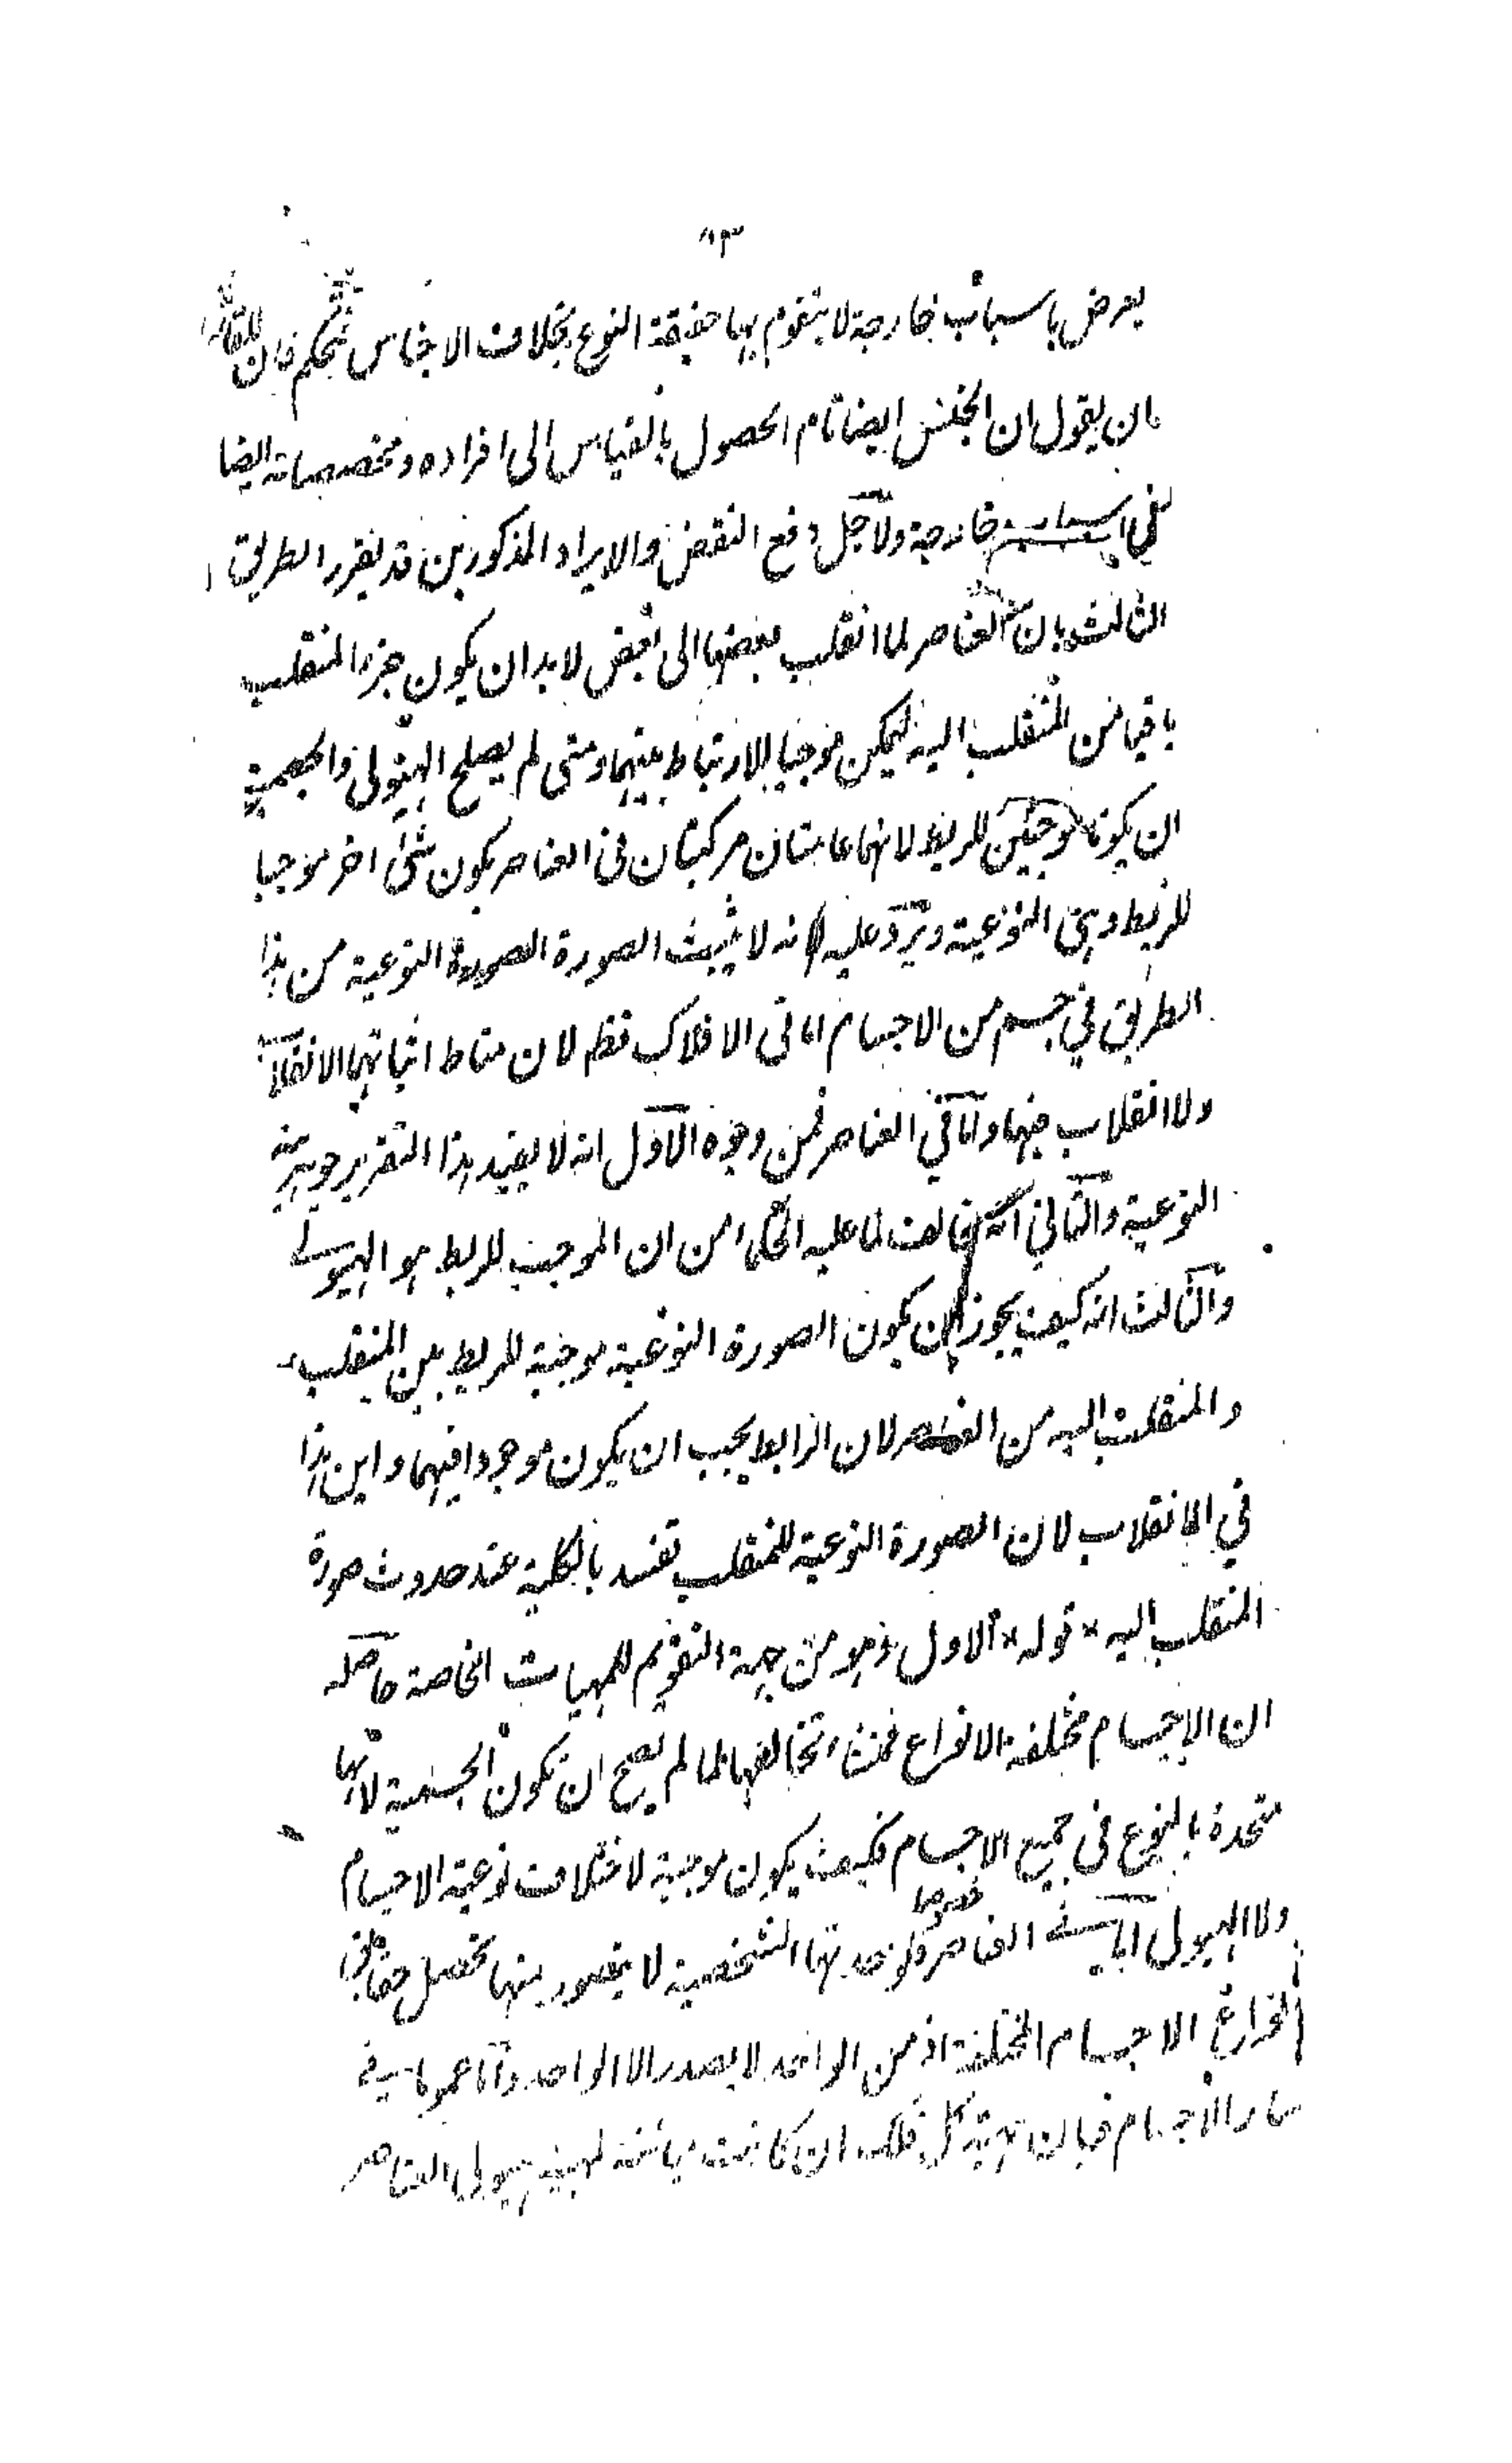 ۸۳
يعرض باسباب خارجة لا يتقوم بها حقيقة النوع بخلاف الاجناس تحكم فان للقائل
ان يقول ان الجنس ايضا تام الحصول بالقياس الى افراده ومخصصاته ايضا
هي اسباب خارجة ولاجل دفع النقض والايراد المذكورين قد يقرر الطريق
الثالث بان العناصر لما انقلب بعضها الى بعض لابد ان يكون جزء المنقلب
باقيا من المنقلب اليه ليكن موجبا للارتباط بينهما ومتى لم يصلح الهيولى والجسمية
ان يكونا موجبتين للربط لانهما عامتان مركبتان في العناصر يكون شئ اخر موجبا
للربط وهي النوعية ويرد عليه انه لا يثبت الصورة الصورة النوعية من هذا
الطريق في جسم من الاجسام اما في الافلاك فظ لان مناط اثباتها الانقلاب
ولا انقلاب فيها واما في العناصر فمن وجوه الاول انه لا يفيد هذا التقرير جوهرية
النوعية والثاني انه مخالف لما عليه الحكماء من ان الموجب للربط هو الهيولى
والثالث انه كيف يجوز ان يكون الصورة النوعية موجبة للربط بين المنقلب
والمنقلب اليه من العناصر لان الرابط يجب ان يكون موجودا فيهما واين هذا
في الانقلاب لان الصورة النوعية للمنقلب تفسد بالكلية عند حدوث صورة
المنقلب اليه * قوله * الاول وهو من جهة التقويم للمهيات الخاصة حاصله
ان الاجسام مختلفة الانواع فمنشاء تخالفها لما لم يصح ان تكون الجسمية لانها
متحدة بالنوع في جميع الاجسام فكيف يكون موجبة لاختلاف نوعية الاجسام
ولا الهيولى اما في العناصر خصوصا فلوحدتها الشخصية لا يتصور منها تحصل حقائق
انواع الاجسام المختلفة اذ من الواحد لا يصدر الا الواحد واما عموما في
سائر الاجسام فبان هيولى كل فلك ان كانت مباينة لهيولى العناصر